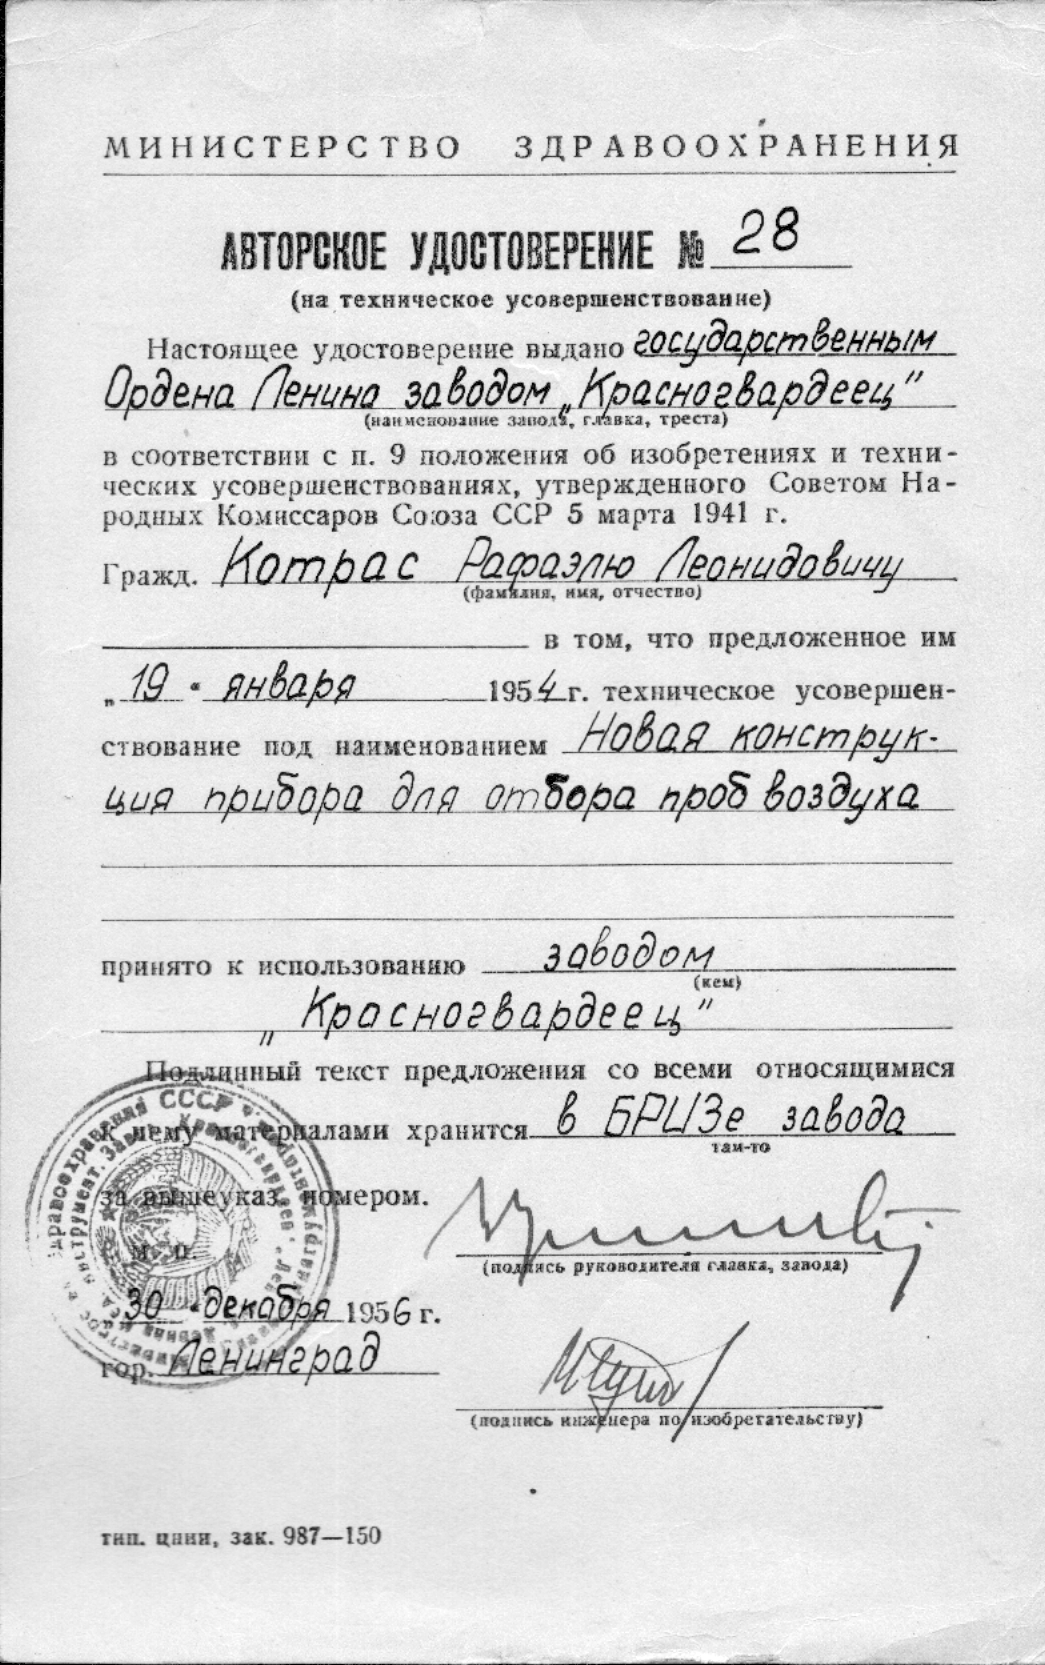 МИНИСТЕРСТВО ЗДРАВООХРАНЕНИЯ
АВТОРСКОЕ УДОСТОВЕРЕНИЕ № 28
(на техническое усовершенствование)
Настоящее удостоверение выдано государственным
Ордена Ленина заводом „Красногвардеец"
(наименование завода, главка, треста)
в соответствии с п. 9 положения об изобретениях и техни-
ческих усовершенствованиях, утвержденного Советом На-
родных Комиссаров Союза ССР 5 марта 1941 г.
Гражд. Котрас Рафаэлю Леонидовичу
(фамилия, имя, отчество)
в том, что предложенное им
„19" января 1954 г. техническое усовершен-
ствование под наименованием Новая конструк-
ция прибора для отбора проб воздуха
принято к использованию заводом
(кем)
„Красногвардеец"
Подлинный текст предложения со всеми относящимися
к нему материалами хранится в БРИЗе завода
там-то
за вышеуказ. номером.
м. п.
(подпись руководителя главка, завода)
30 декабря 1956 г.
гор. Ленинград
(подпись инженера по изобретательству)
тип. цнии, зак. 987—150